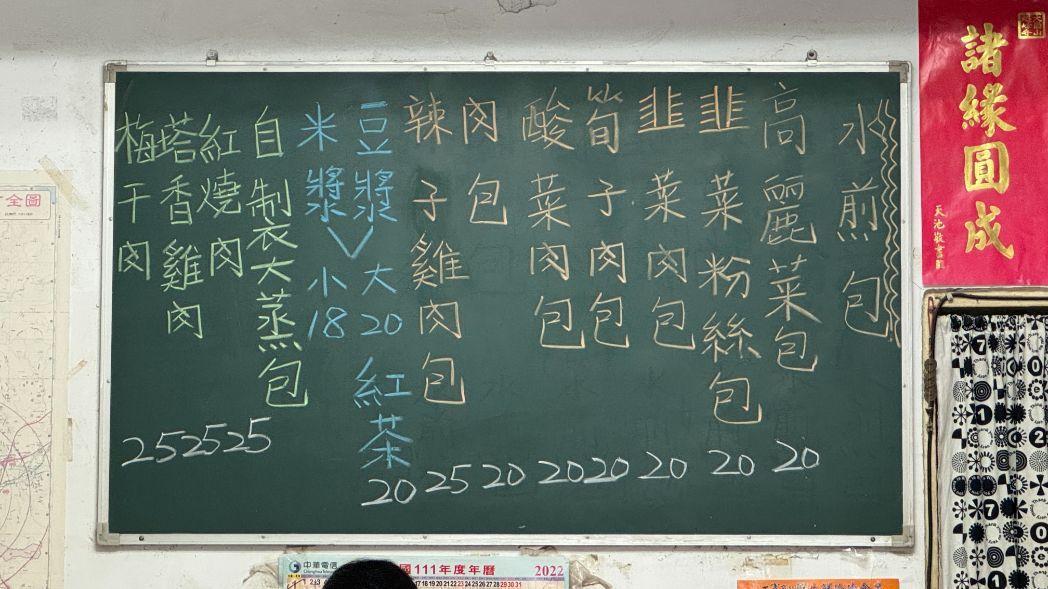 諸緣圓成
水煎包
高麗菜包 20
韭菜粉絲包 20
韭菜肉包 20
筍子肉包 20
酸菜肉包 20
肉包 20
辣子雞肉包 25
豆漿 大20
米漿 小18
紅茶 20
自製大蒸包
紅燒肉 25
塔香雞肉 25
梅干肉 25
全圖
中華電信
國111年度年曆
2022